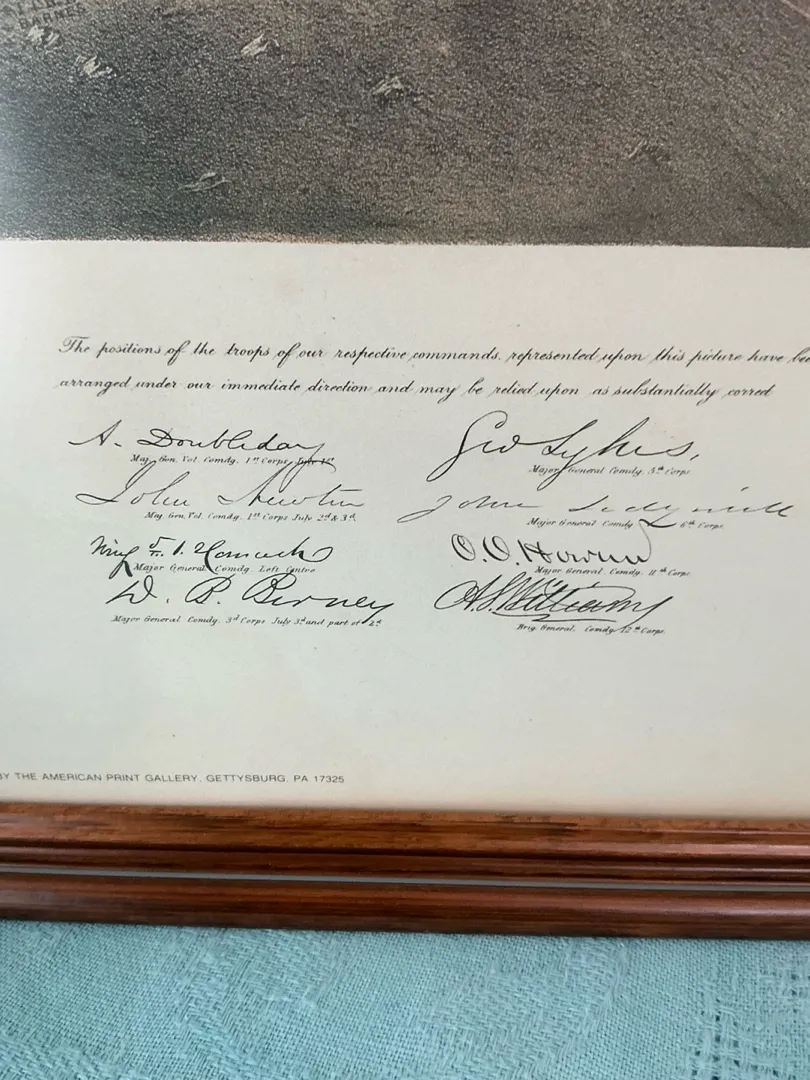 BARNES
The positions of the troops of our respective commands, represented upon this picture have
arranged under our immediate direction and may be relied upon as substantially correct
A. Doubleday
Maj. Gen. Vol. Comdg. 1st Corps July 1st
Geo Sykes,
Major General Comdg. 5th Corps
John Newton
Maj. Gen. Vol. Comdg. 1st Corps July 2d & 3d.
John Sedgwick
Major General Comdg. 6th Corps
Winf S. Hancock
Major General Comdg. Left Centre
O. O. Howard
Major General. Comdg. 11th Corps
D. B. Birney
Major General Comdg. 3d Corps July 3d and part of 2d
A. S. Williams
Brig. General. Comdg. 12th Corps.
BY THE AMERICAN PRINT GALLERY, GETTYSBURG, PA 17325